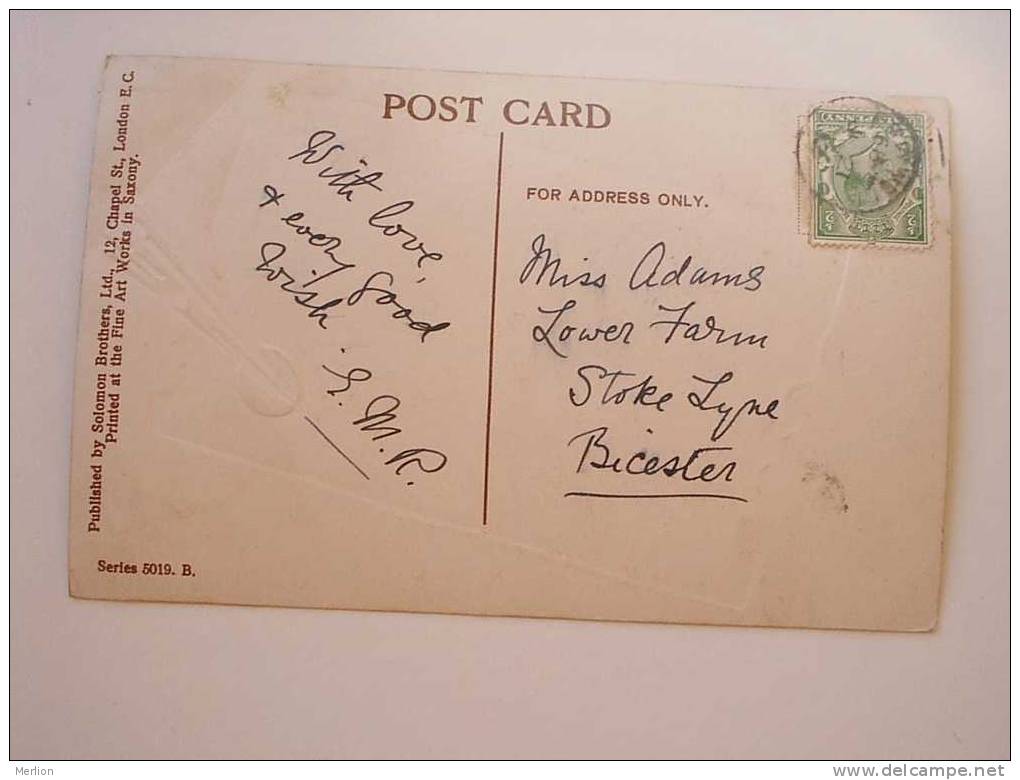 POST CARD
FOR ADDRESS ONLY.
With love,
& every good
wish.
E. M. R.
Miss Adams
Lower Farm
Stoke Lyne
Bicester
Published by Solomon Brothers, Ltd., 12, Chapel St., London E.C.
Printed at the Fine Art Works in Saxony.
Series 5019. B.
Merlion
www.delcampe.net